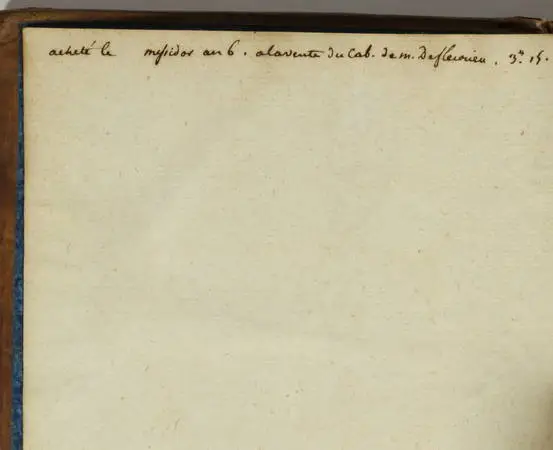 acheté le messidor an 6. a la vente du Cab. de m. De fleurieu. 3.# 15.